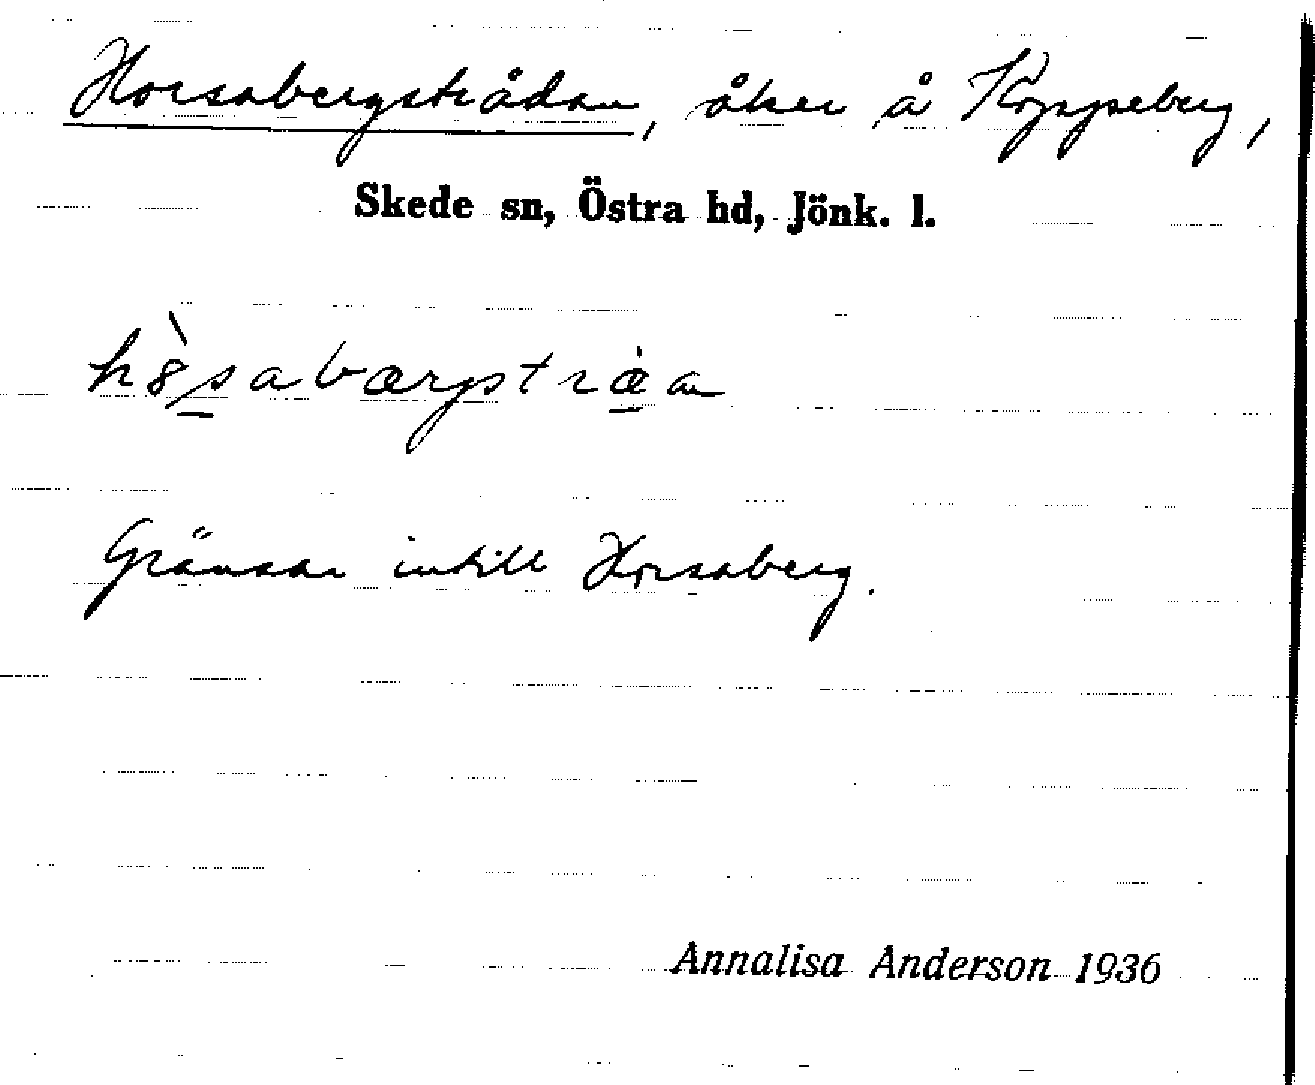 Horsabergsträdan, åker å Koppseberg,
Skede sn, Östra hd, Jönk. l.
Gränsar intill Horsaberg.
Annalisa Anderson 1936